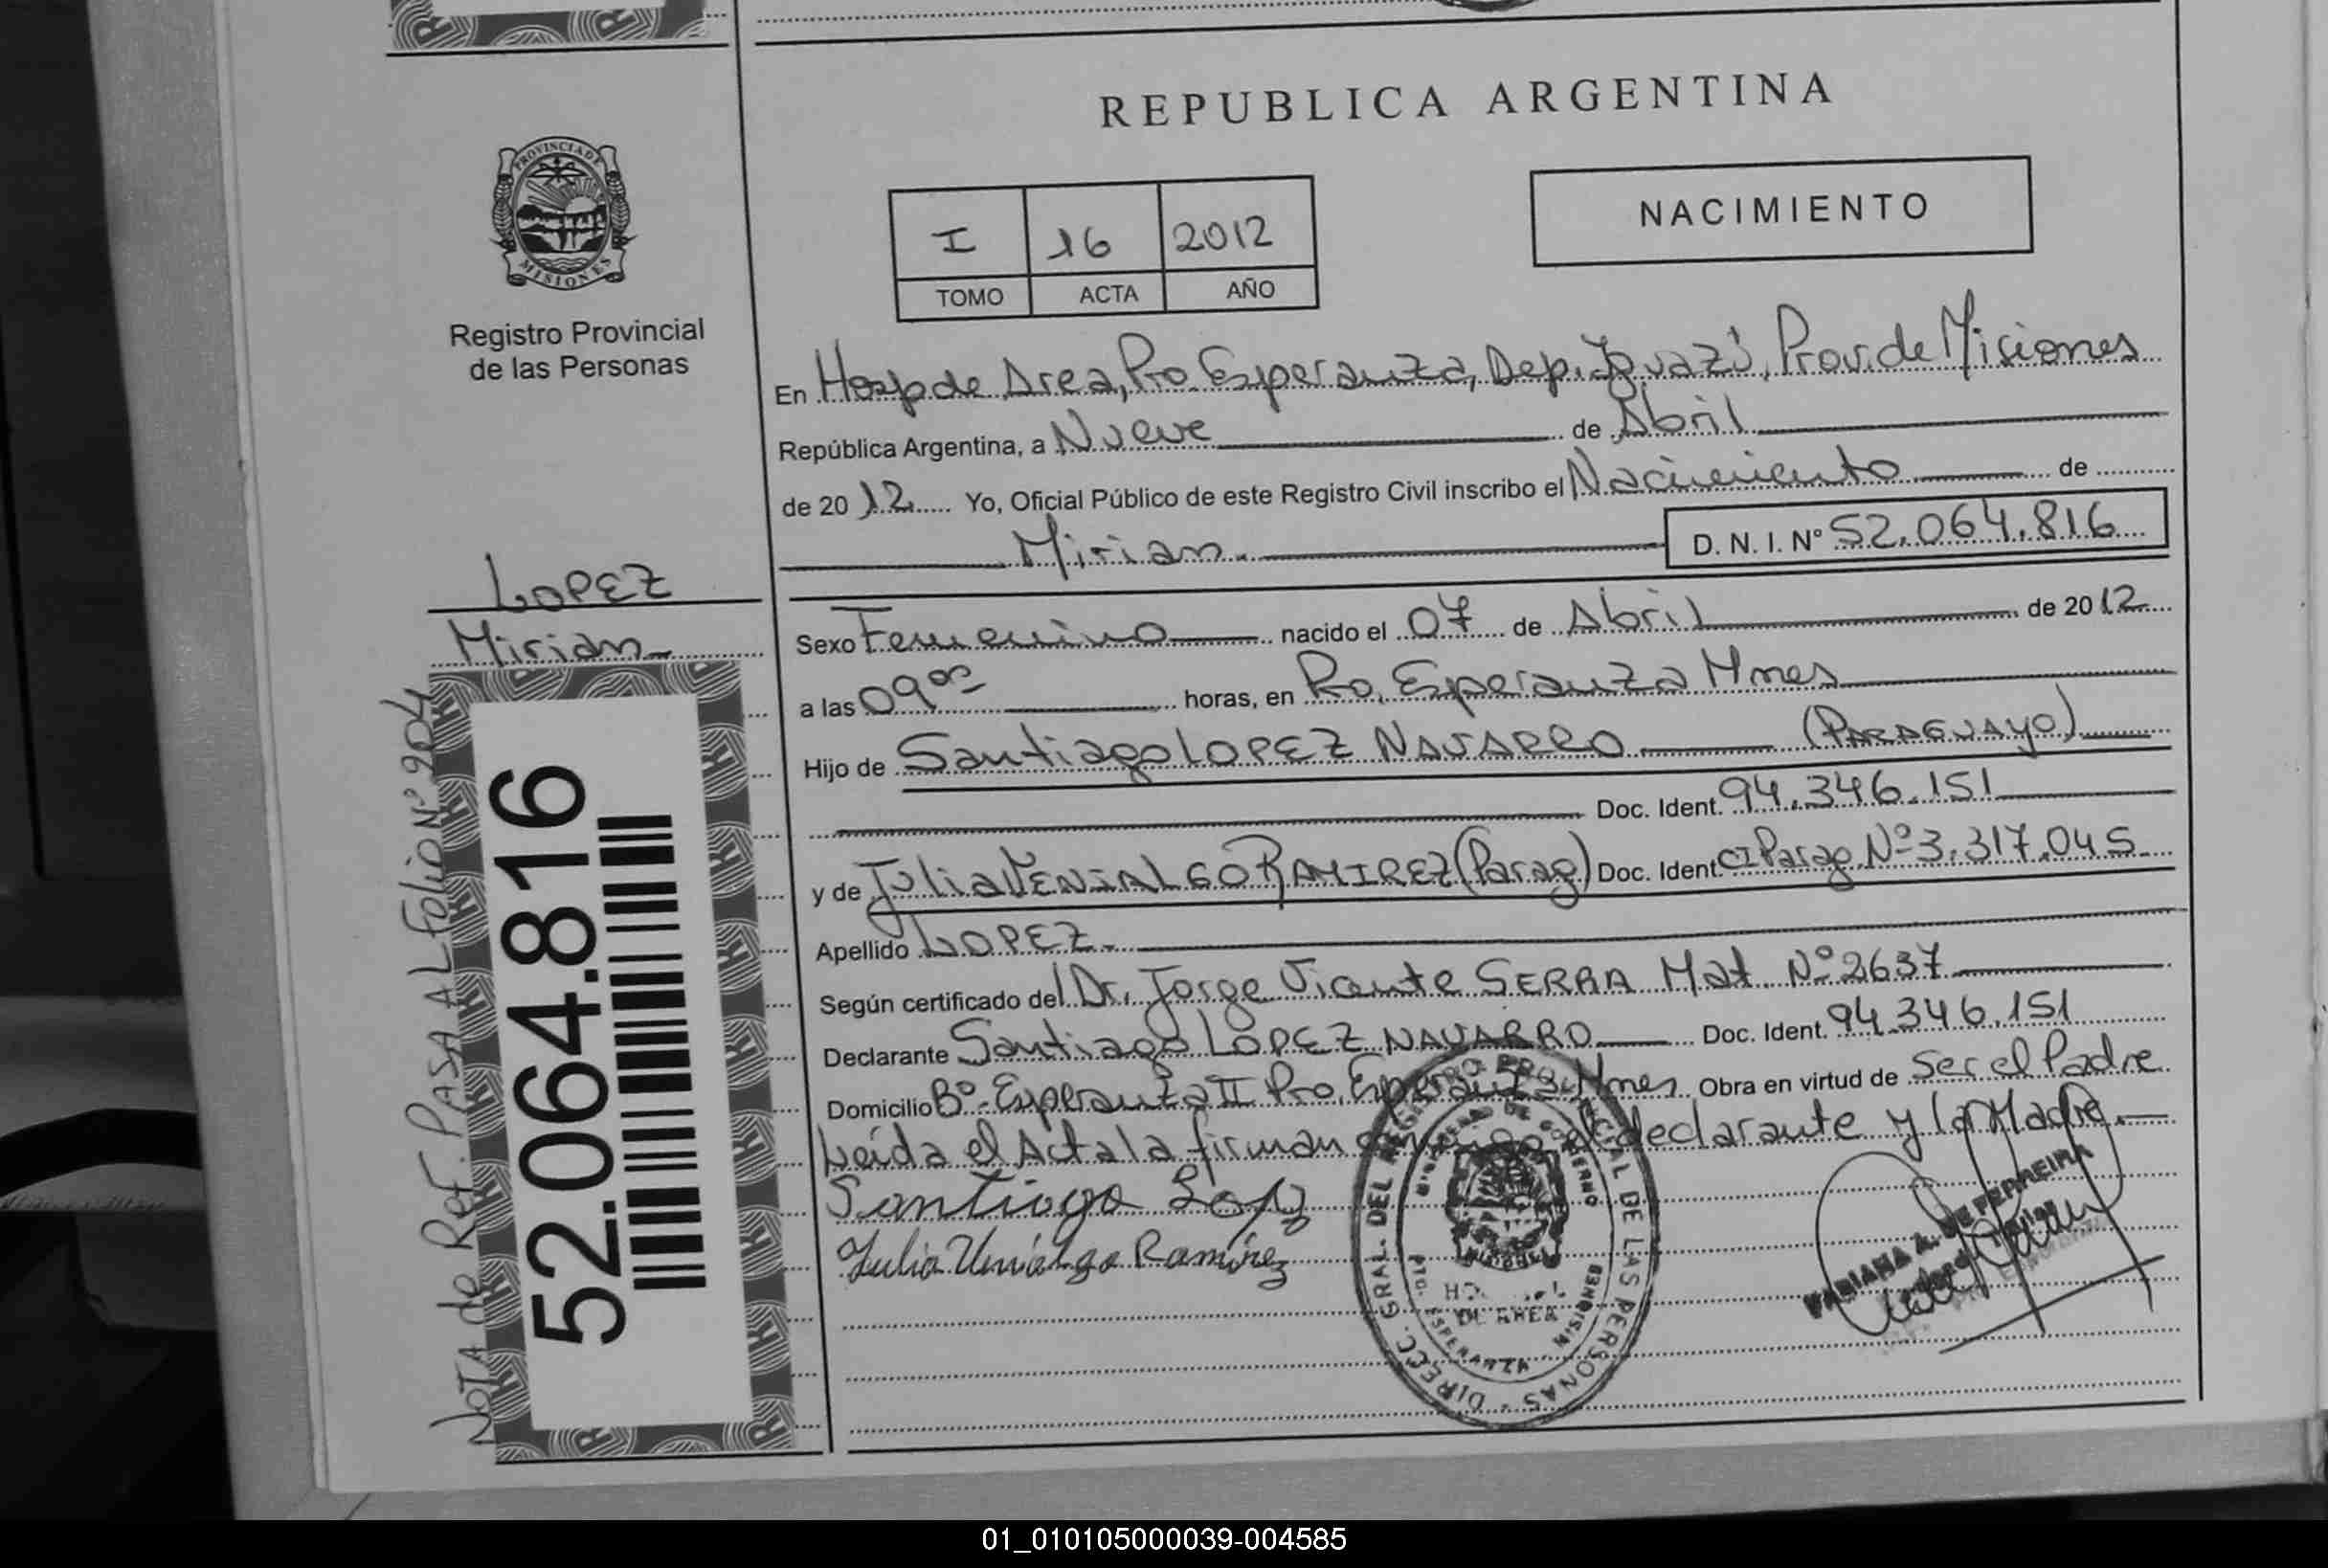 REPUBLICA ARGENTINA
PROVINCIA DE
MISIONES
Registro Provincial
de las Personas
I 16 2012
TOMO ACTA AÑO
NACIMIENTO
En Hosp de Area, Pto. Esperanza, Dep. Iguazú, Prov. de Misiones
República Argentina, a Nueve de Abril
de 2012 Yo, Oficial Público de este Registro Civil inscribo el Nacimiento de
Mirian. D. N. I. N° 52.064.816
LOPEZ
Mirian
NOTA de Ref. PASA AL Folio Nº 204
52.064.816
Sexo Femenino nacido el 07 de Abril de 2012
a las 09 00 horas, en Pto. Esperanza Mnes
Hijo de Santiago LOPEZ NAVARRO (PARAGUAYO)
Doc. Ident. 94.346.151
y de Julia VENIALGO RAMIREZ (Parag) Doc. Ident. CI Parag Nº 3.317.045
Apellido LOPEZ.
Según certificado del Dr. Jorge Vicente SERRA Mat Nº 2637
Declarante Santiago LOPEZ NAVARRO Doc. Ident. 94.346.151
Domicilio Bº Esperanza II Pto. Esperanza Mnes Obra en virtud de Ser el Padre
Leída el Acta la firman conmigo el declarante y la Madre.
Santiago Lopz
Julia Venialgo Ramirez
DIRECC. GRAL. DEL REGISTRO PROVINCIAL DE LAS PERSONAS
MINISTERIO DE GOBIERNO
MISIONES
DE AREA
PTO. ESPERANZA - MISIONES
FABIANA A. DE FERREIRA
01_010105000039-004585